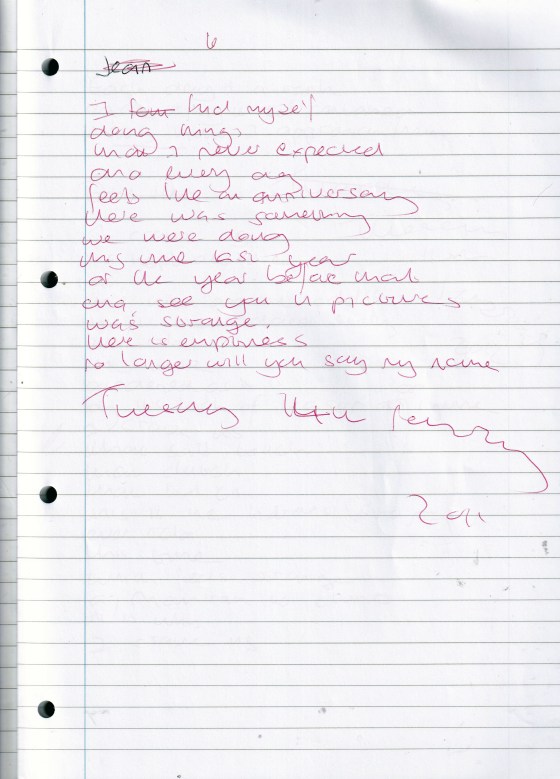 6
Jean
I fou find myself
doing things
that I never expected
and every day
feels like an anniversary
there was something
we were doing
this time last year
or the year before that
and see you in pictures
was strange.
there is emptiness
no longer will you say my name
Tuesday
2011